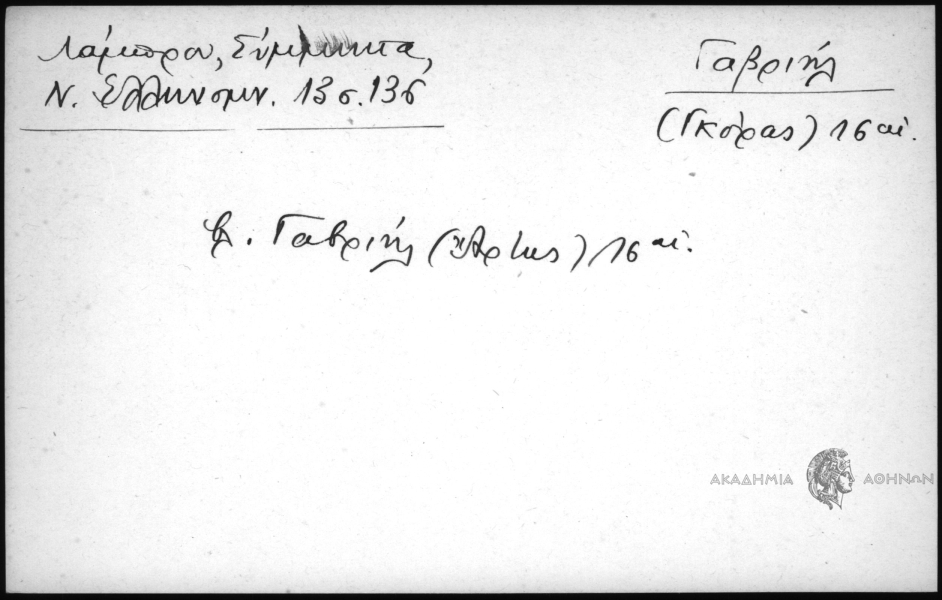 Λάμπρου, Σύμμικτα,
Ν. Ἑλληνομν. 13 σ. 136
Γαβριήλ
(Γκόρας) 16 αἰ.
βλ. Γαβριήλ (Ἄρτης) 16 αἰ.
ΑΚΑΔΗΜΙΑ ΑΘΗΝΩΝ